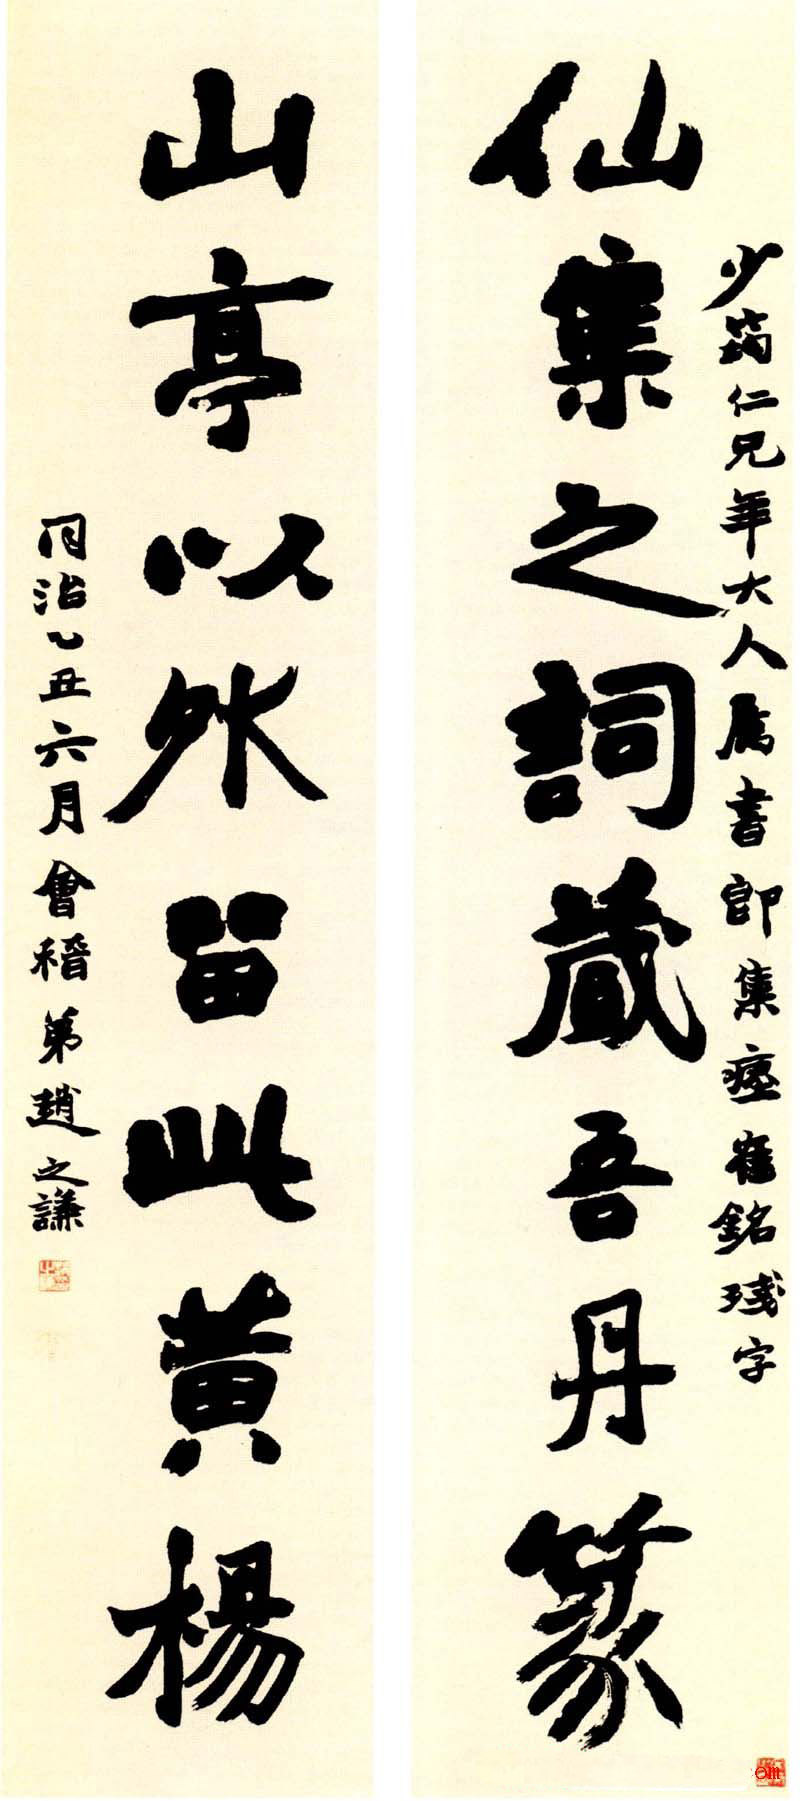 少筠仁兄年大人属書即集瘞崔銘殘字
仙集之詞藏吾丹篆
山亭以外留此黃楊
同治乙丑六月會稽弟趙之謙